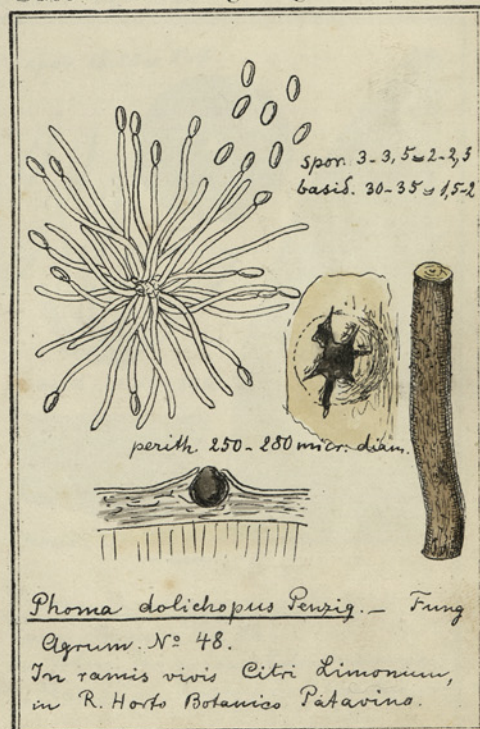 spor. 3-3,5=2-2,5
basid. 30-35=1,5-2
perith. 250-280 micr. diam.
Phoma dolichopus Penzig. — Fung
Agrum. Nº 48.
In ramis vivis Citri Limonum,
in R. Horto Botanico Patavino.